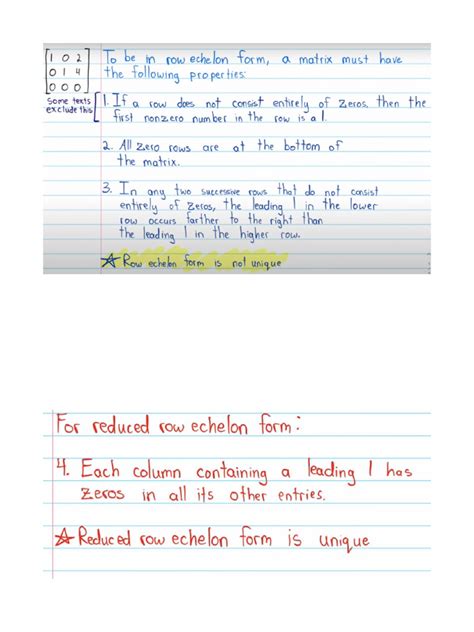 1 0 2
0 1 4
0 0 0
To be in row echelon form, a matrix must have
the following properties:
Some texts
exclude this
1. If a row does not consist entirely of zeros, then the
first nonzero number in the row is a 1.
2. All zero rows are at the bottom of
the matrix.
3. In any two successive rows that do not consist
entirely of zeros, the leading 1 in the lower
row occurs farther to the right than
the leading 1 in the higher row.
☆ Row echelon form is not unique
For reduced row echelon form:
4. Each column containing a leading 1 has
zeros in all its other entries.
☆ Reduced row echelon form is unique